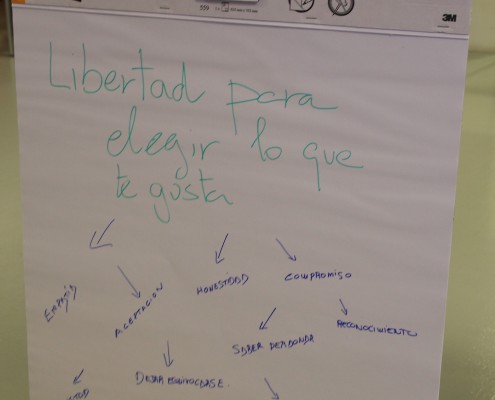 3M
Libertad para
elegir lo que
te gusta
EMPATÍA
ACEPTACION
HONESTIDAD
COMPROMISO
SABER
RECONOCIMIENTO
DEJAR EQUIVOCARSE